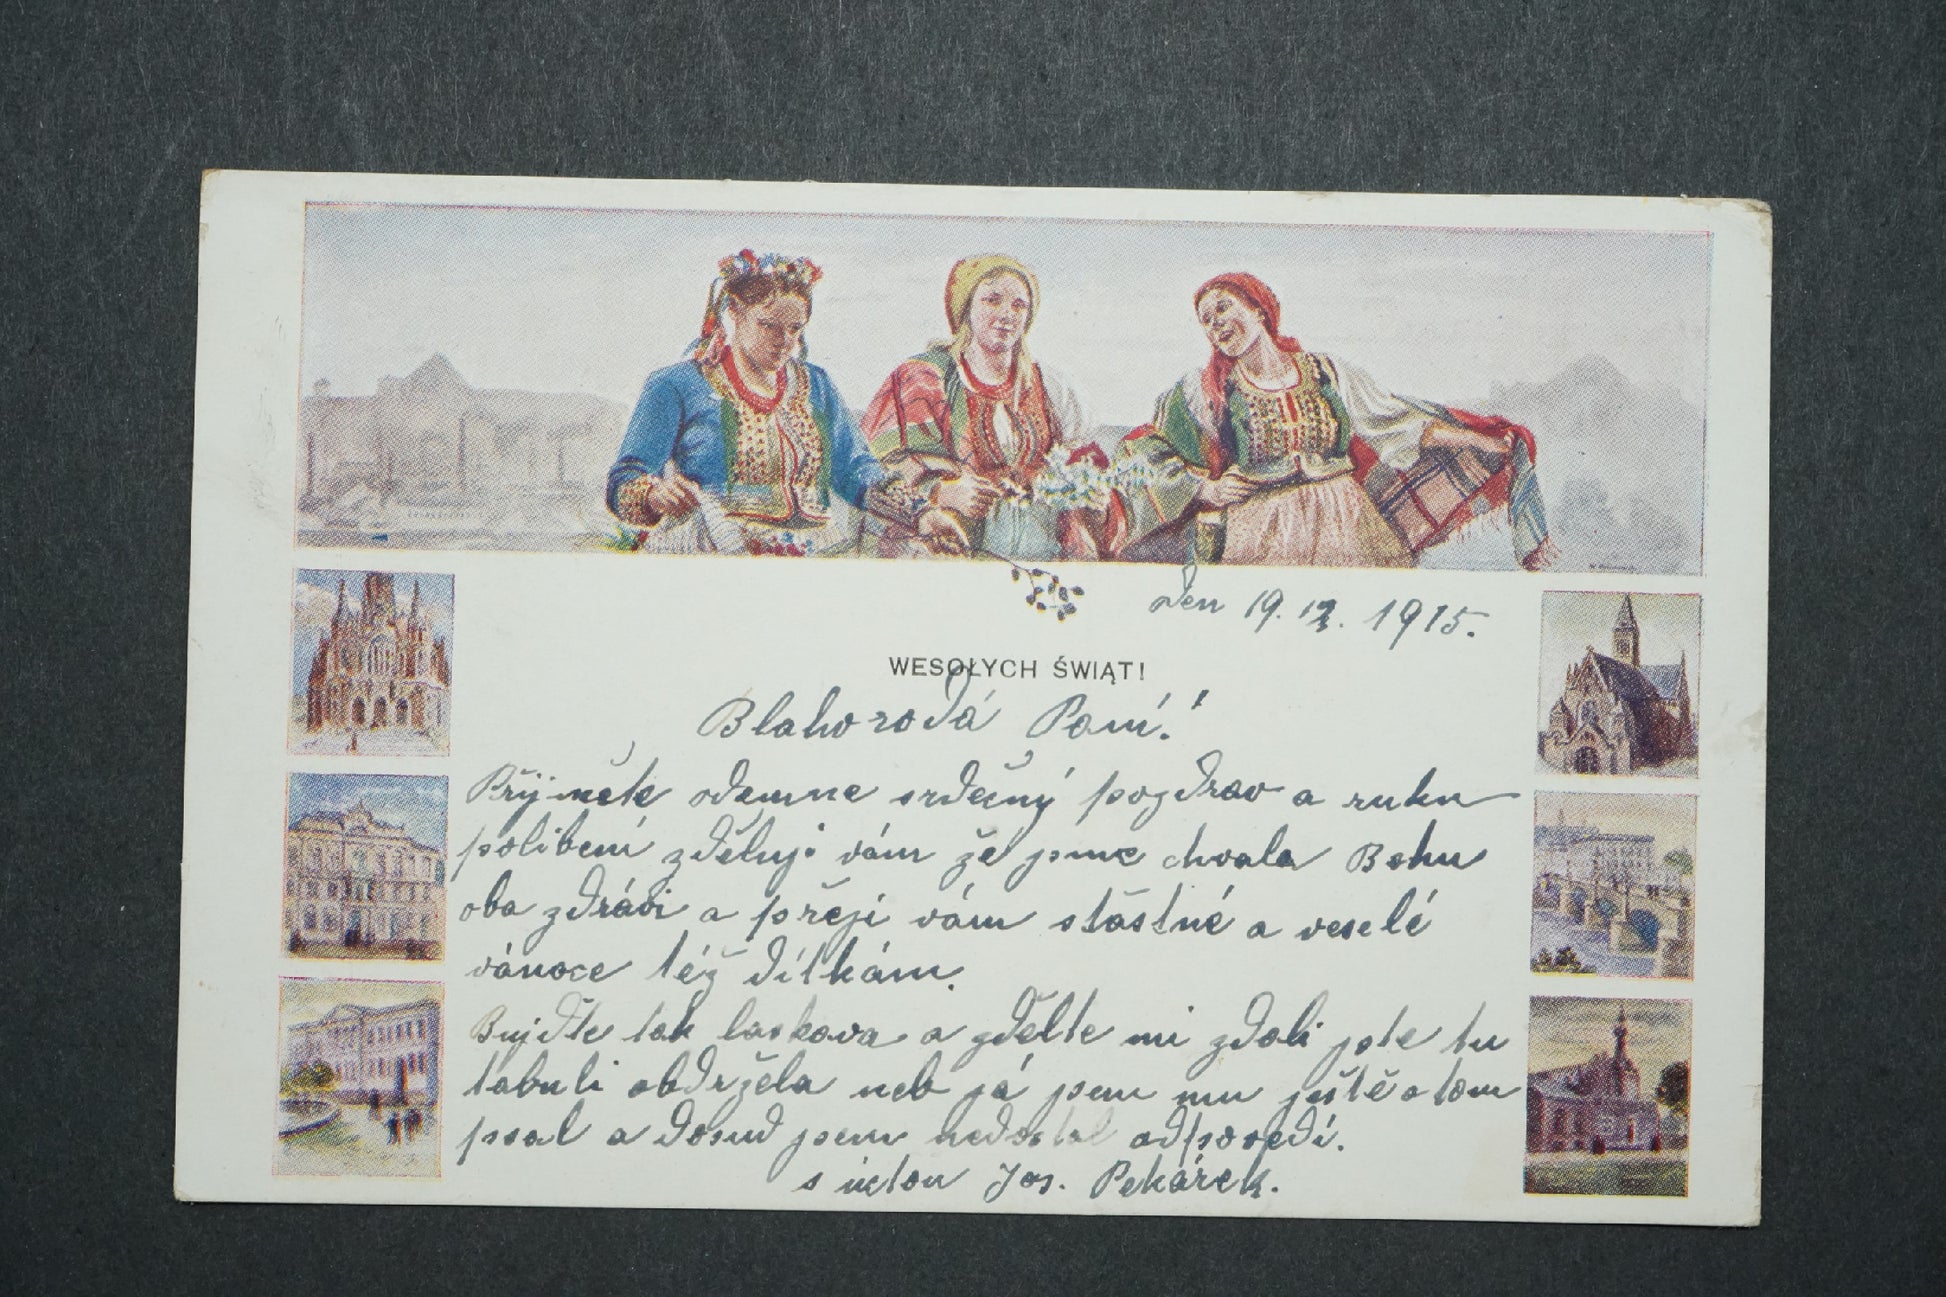 Den 19. 12. 1915.
WESOŁYCH ŚWIĄT!
Blahorodá Paní!
Přijměte odemne srdečný pozdrav a ruku
políbení zděluji vám že jsme chvala Bohu
oba zdrávi a přeji vám stastné a veselé
vánoce též dítkám.
Bujdte tak laskava a zdělte mi zdali jste tu
tabuli obdržela neb já jsem mu ještě o tom
psal a dosud jsem nedostal odpovědi.
s úctou Jos. Pekárek.